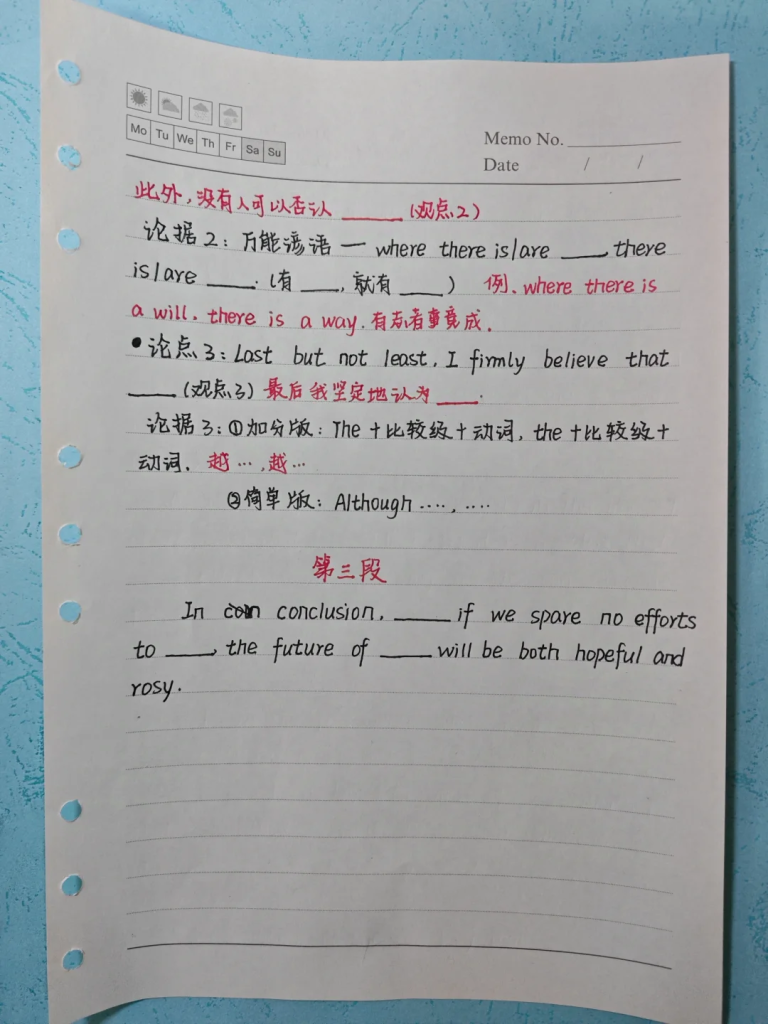 Mo Tu We Th Fr Sa Su
Memo No.
Date / /
此外,没有人可以否认 ____ (观点2)
论据2: 万能谚语 — where there is/are ____, there
is/are ____. (有 ____, 就有 ____) 例. where there is
a will. there is a way. 有志者事竟成.
•论点3: Last but not least, I firmly believe that
____ (观点3) 最后我坚定地认为 ____.
论据3: ①加分版: The +比较级+动词, the +比较级+
动词. 越…,越…
②简单版: Although ...., ....
第三段
In conclusion, ____ if we spare no efforts
to ____, the future of ____ will be both hopeful and
rosy.